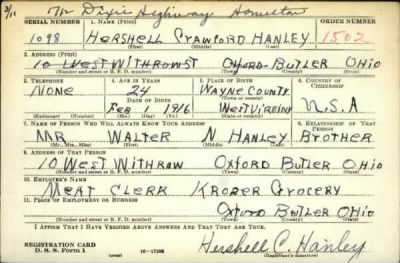 3/11 1712 Dixie Highway Hamilton
SERIAL NUMBER 1. NAME (Print) ORDER NUMBER
1098 HERSHELL CRAWFORD HANLEY 1502
(First) (Middle) (Last)
2. ADDRESS (Print)
10 WEST WITHROW ST OXFORD BUTLER OHIO
(Number and street or R. F. D. number) (Town) (County) (State)
3. TELEPHONE 4. AGE IN YEARS 5. PLACE OF BIRTH 6. COUNTRY OF CITIZENSHIP
NONE 24 WAYNE COUNTY
DATE OF BIRTH (Town or county)
FEB 1 1916 WEST VIRGINY U.S.A
(Exchange) (Number) (Mo.) (Day) (Yr.) (State or country)
7. NAME OF PERSON WHO WILL ALWAYS KNOW YOUR ADDRESS 8. RELATIONSHIP OF THAT PERSON
MR WALTER N HANLEY BROTHER
(Mr., Mrs., Miss) (First) (Middle) (Last)
9. ADDRESS OF THAT PERSON
10 WEST WITHROW OXFORD BUTLER OHIO
(Number and street or R. F. D. number) (Town) (County) (State)
10. EMPLOYER'S NAME
MEAT CLERK KROGER GROCERY
11. PLACE OF EMPLOYMENT OR BUSINESS
OXFORD BUTLER OHIO
(Number and street or R. F. D. number) (Town) (County) (State)
I AFFIRM THAT I HAVE VERIFIED ABOVE ANSWERS AND THAT THEY ARE TRUE.
REGISTRATION CARD
D. S. S. Form 1 (over) Hershell C. Hanley
(Registrant's signature)